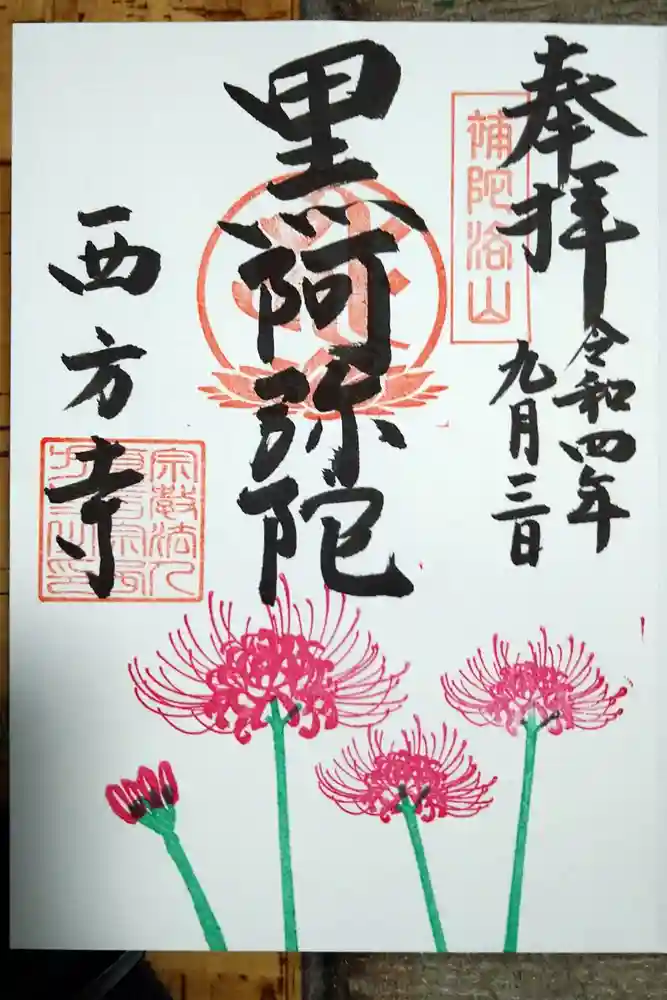 奉拝
令和四年
九月三日
補陀洛山
黒阿弥陀
西方寺
宗教法人